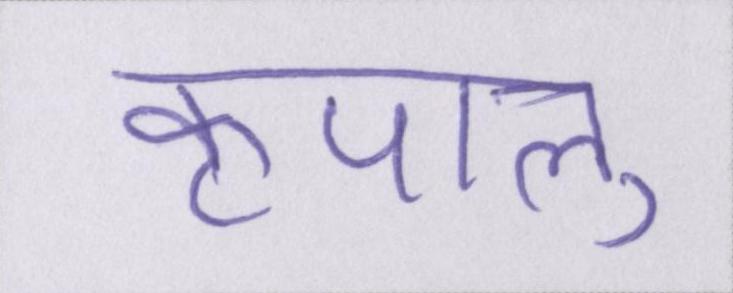 कृपालु